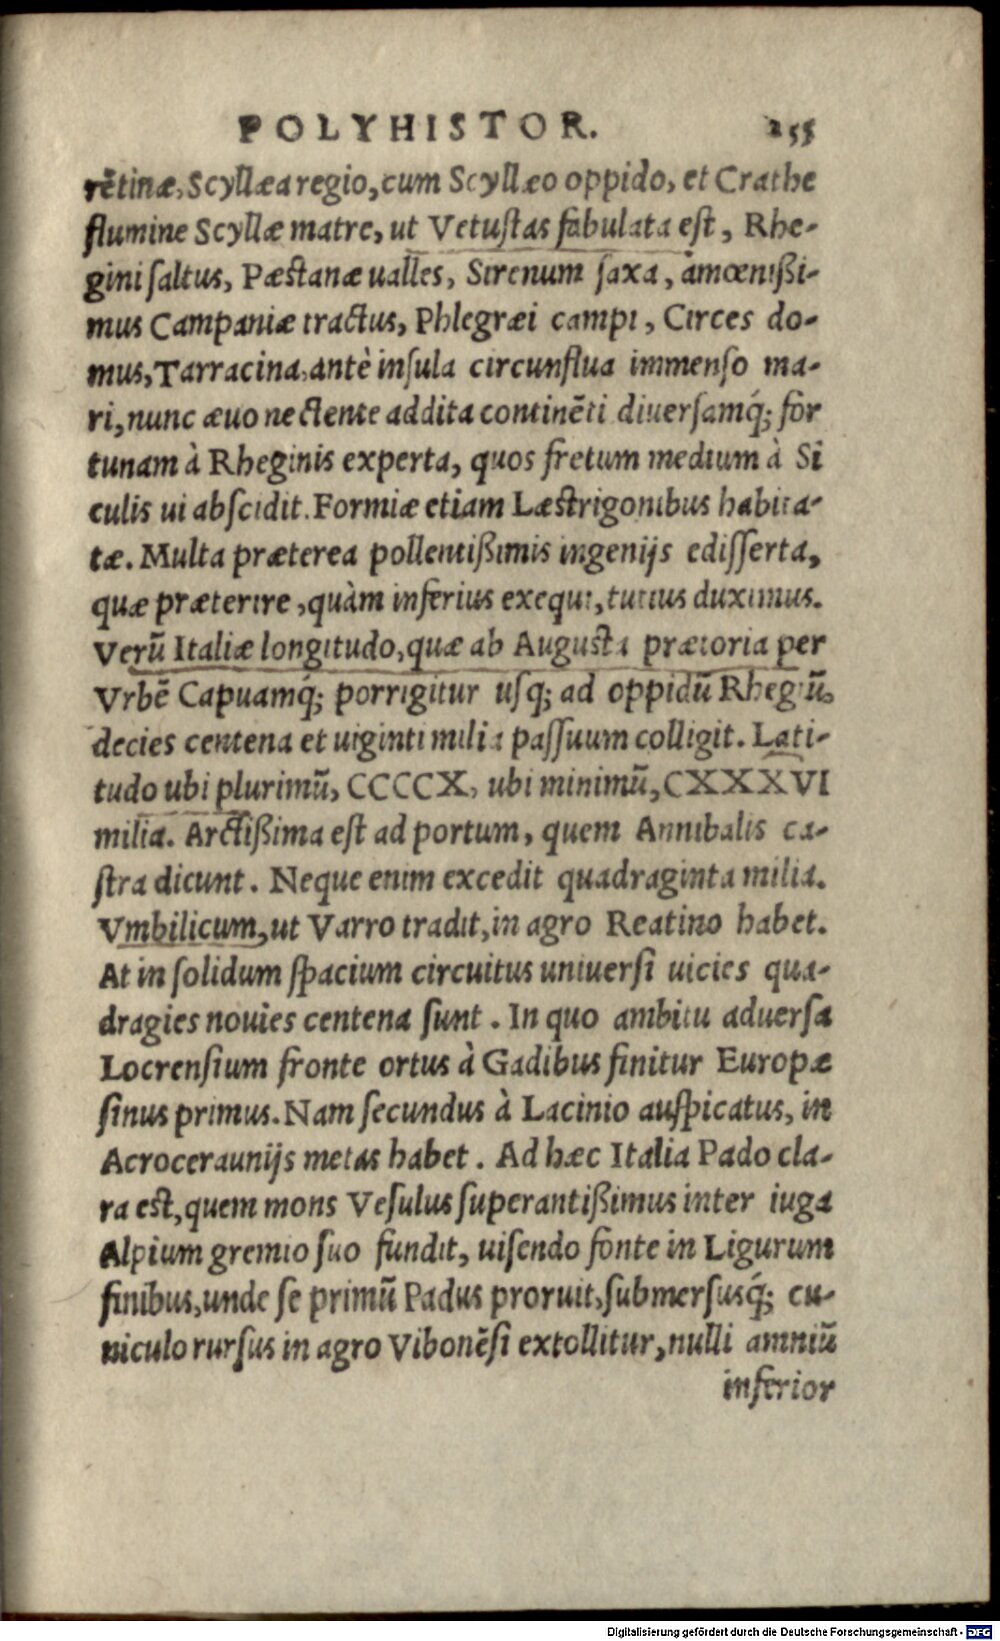 POLYHISTOR. 255
rētinæ, Scyllæa regio, cum Scyllæo oppido, et Crathe
flumine Scyllæ matre, ut Vetustas fabulata est, Rhe-
gini saltus, Pæstanæ ualles, Sirenum saxa, amœnißi-
mus Campaniæ tractus, Phlegræi campi, Circes do-
mus, Tarracina, antè insula circunflua immenso ma-
ri, nunc æuo nectente addita continēti diuersamq́; for
tunam à Rheginis experta, quos fretum medium à Si
culis ui abscidit. Formiæ etiam Læstrigonibus habita-
tæ. Multa præterea pollentißimis ingenijs edisserta,
quæ præterire, quàm inferius exequi, tutius duximus.
Verũ Italiæ longitudo, quæ ab Augusta prætoria per
Vrbē Capuamq́; porrigitur usq; ad oppidũ Rhegiũ,
decies centena et uiginti milia passuum colligit. Lati-
tudo ubi plurimũ, CCCCX, ubi minimũ, CXXXVI
milia. Arctißima est ad portum, quem Annibalis ca-
stra dicunt. Neque enim excedit quadraginta milia.
Vmbilicum, ut Varro tradit, in agro Reatino habet.
At in solidum spacium circuitus uniuersi uicies qua-
dragies nouies centena sunt. In quo ambitu aduersa
Locrensium fronte ortus à Gadibus finitur Europæ
sinus primus. Nam secundus à Lacinio auspicatus, in
Acroceraunijs metas habet. Ad hæc Italia Pado cla-
ra est, quem mons Vesulus superantißimus inter iuga
Alpium gremio suo fundit, uisendo fonte in Ligurum
finibus, unde se primũ Padus proruit, submersusq́; cu-
niculo rursus in agro Vibonēsi extollitur, nulli amniũ
inferior
Digitalisierung gefördert durch die Deutsche Forschungsgemeinschaft - DFG